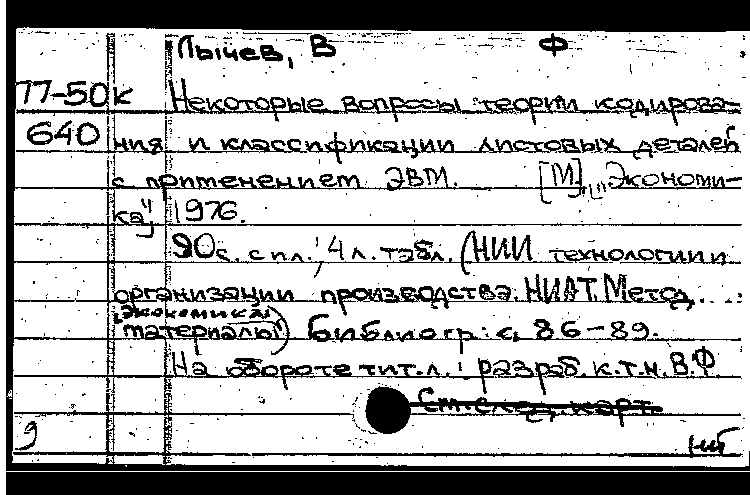 Лычев, В Ф
77-50к Некоторые вопросы теории кодирова-
640 ния и классификации листовых деталей
с применением ЭВМ. [М], "Экономи-
ка", 1976.
90с. с ил.; 4 л. табл. (НИИ технологии и
организации производства. НИАТ. Метод.
"экономика"
материалы) Библиогр.: с. 86-89.
На обороте тит. л.: разраб. к.т.н. В.Ф.
См. след. карт.
9